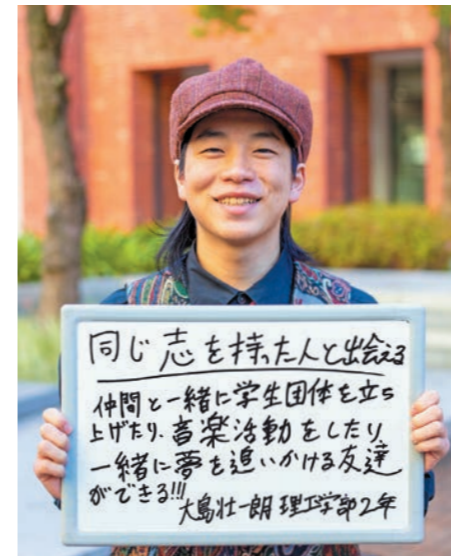 同じ志を持った人と出会える
仲間と一緒に学生団体を立ち
上げたり、音楽活動をしたり、
一緒に夢を追いかける友達
ができる!!!
大島壮一朗 理工学部2年